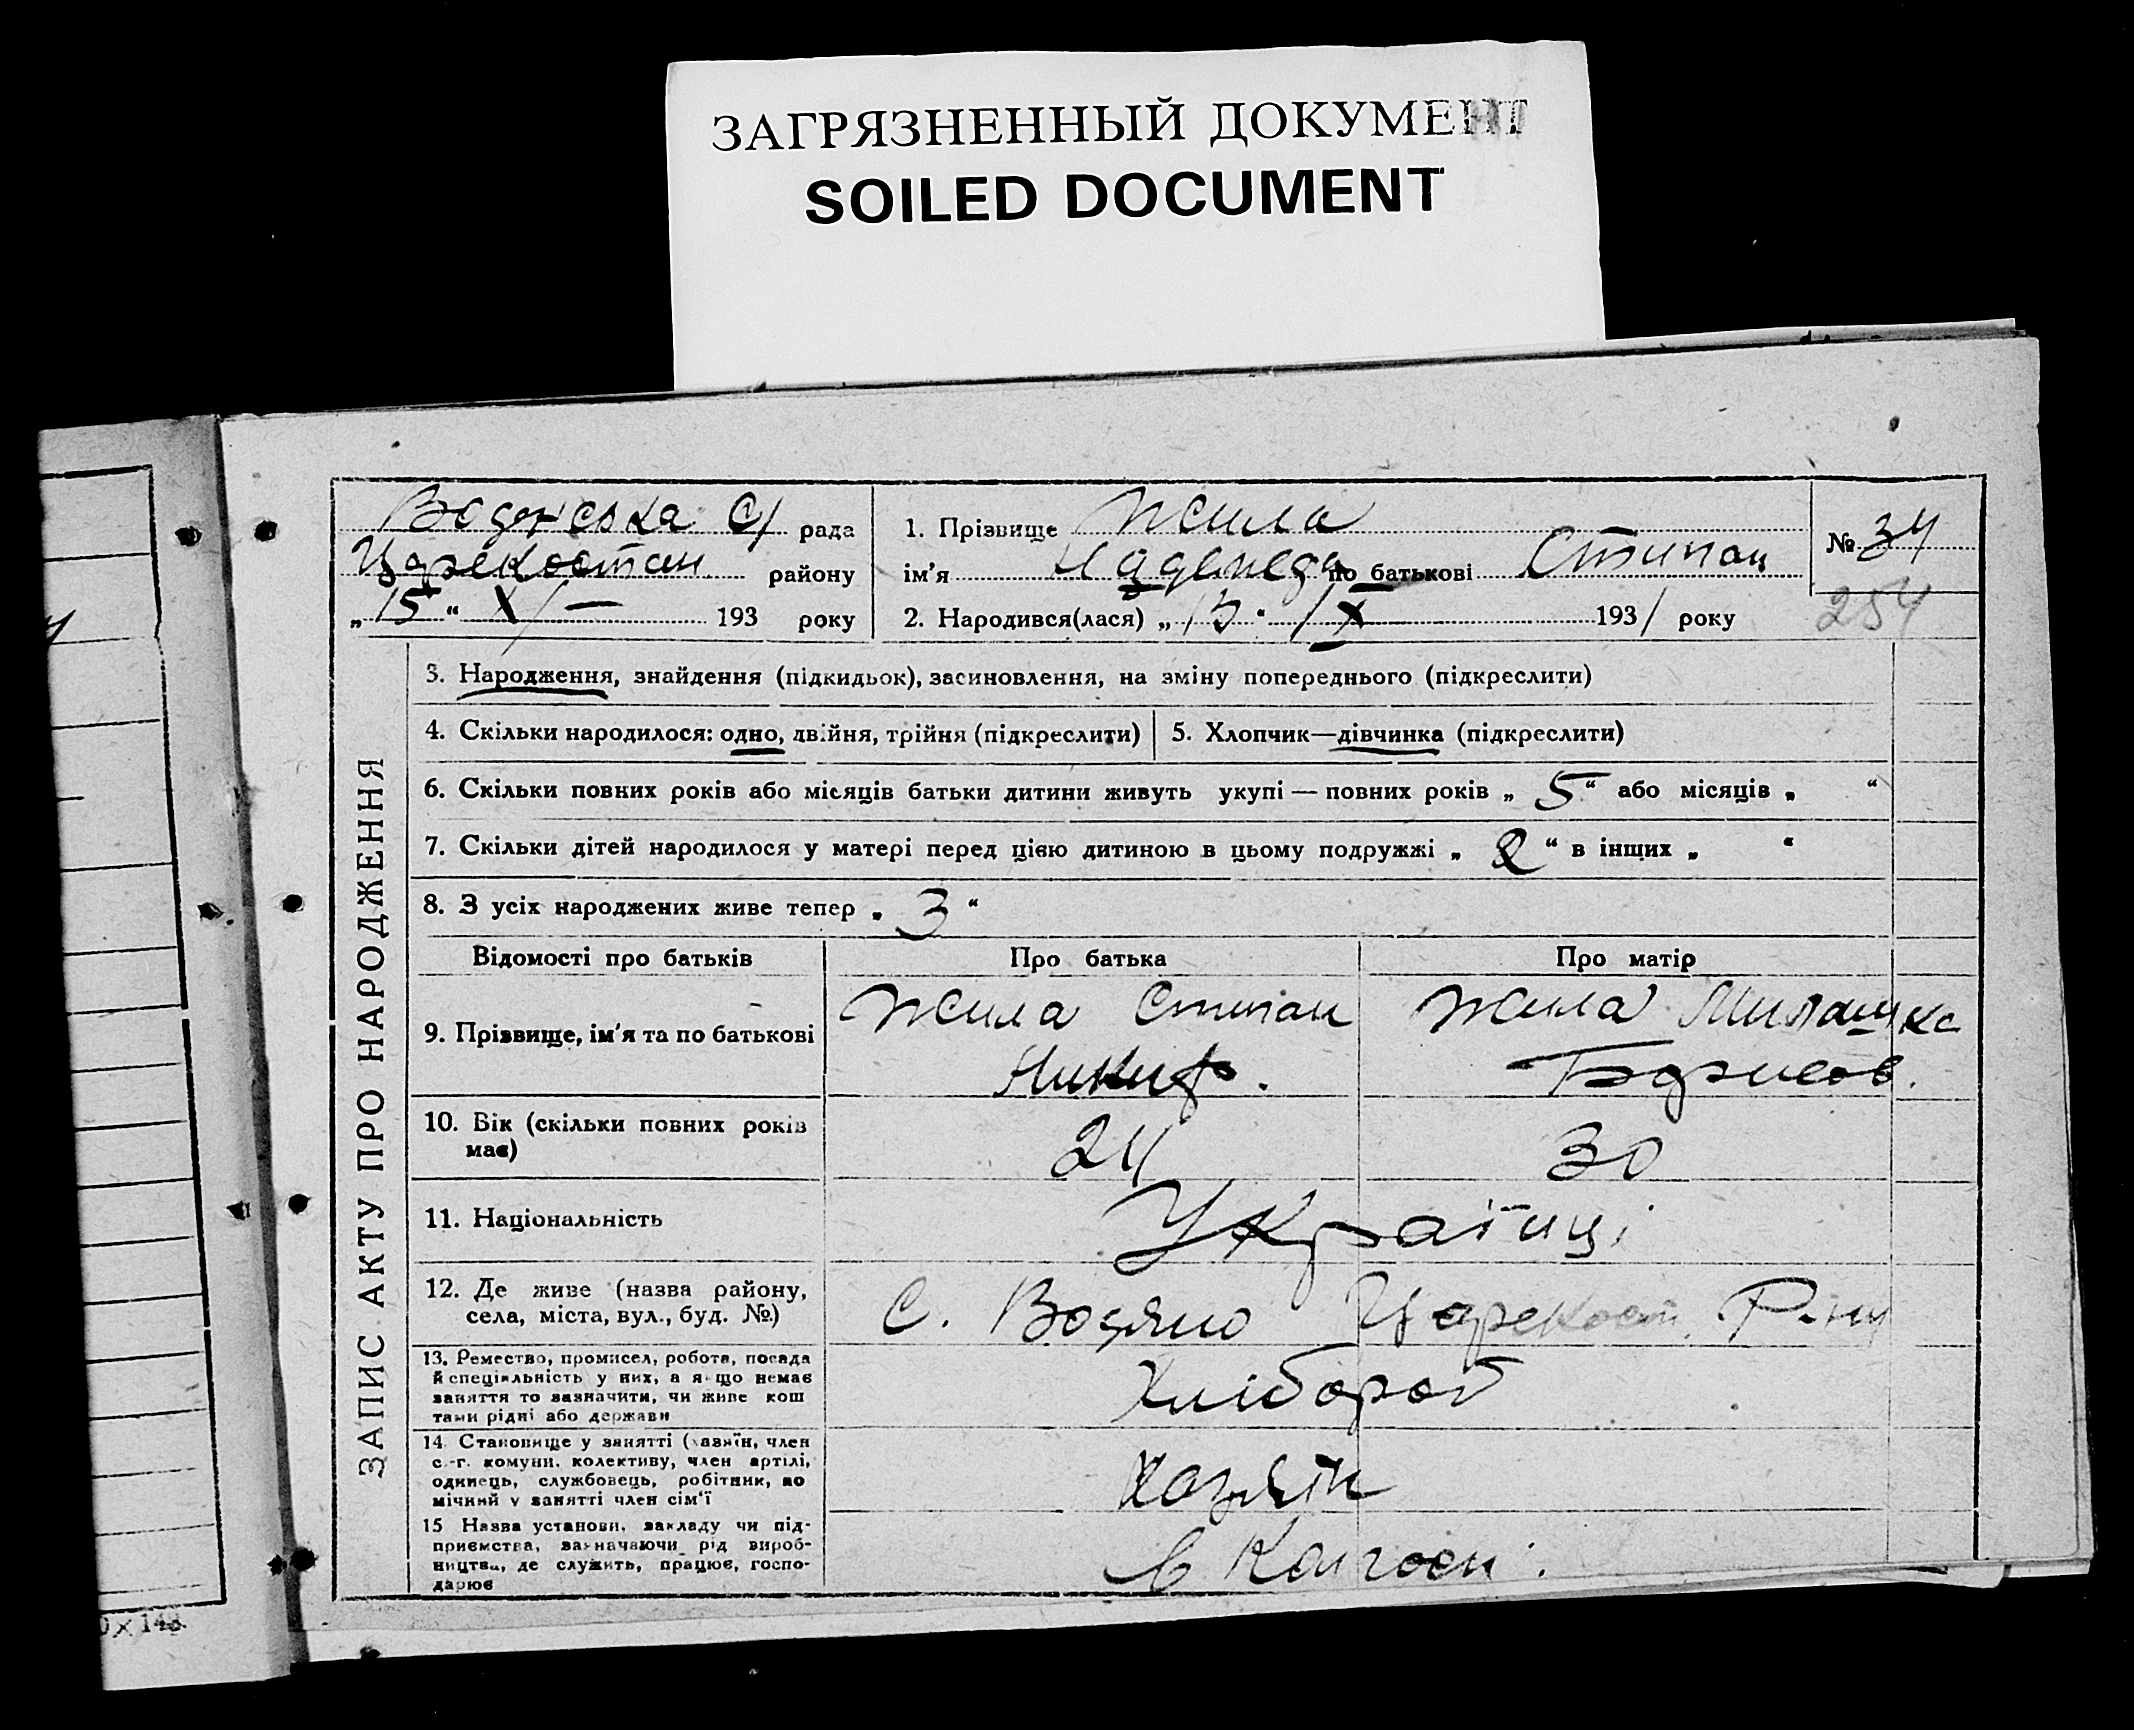 ЗАГРЯЗНЕННЫЙ ДОКУМЕНТ
SOILED DOCUMENT
Водянська С/ рада
Царекостан. району
„15“ XI — 193 року
1. Прізвище Жила
ім'я по батькові Степан
2. Народився(лася) „13“ IX 1931 року
№ 34
254
ЗАПИС АКТУ ПРО НАРОДЖЕННЯ
3. Народження, знайдення (підкидьок), засиновлення, на зміну попереднього (підкреслити)
4. Скільки народилося: одно, двійня, трійня (підкреслити)
5. Хлопчик—дівчинка (підкреслити)
6. Скільки повних років або місяців батьки дитини живуть укупі — повних років „ 5 “ або місяців „ “
7. Скільки дітей народилося у матері перед цією дитиною в цьому подружжі „ 2 “ в інших „ “
8. З усіх народжених живе тепер „ 3 “
Відомості про батьків Про батька Про матір
9. Прізвище, ім'я та по батькові
Жила Степан
Никиф.
Жила
10. Вік (скільки повних років
має)
24 30
11. Національність Українці
12. Де живе (назва району,
села, міста, вул., буд. №)
С. Водяно Царекост. Р-ну
13. Ремество, промисел, робота, посада
й спеціяльність у них, а якщо немає
заняття то зазначити, чи живе кош
тами рідні або держави
Хлібороб
14. Становище у занятті (хазяїн, член
с.-г. комуни, колективу, член артілі,
одинець, службовець, робітник, по
мічний у занятті член сім'ї
Хазяїн
15 Назва установи, закладу чи під-
приємства, зазначаючи рід вироб-
ництва, де служить, працює, госпо-
дарює
в Колгосп.
0×148.